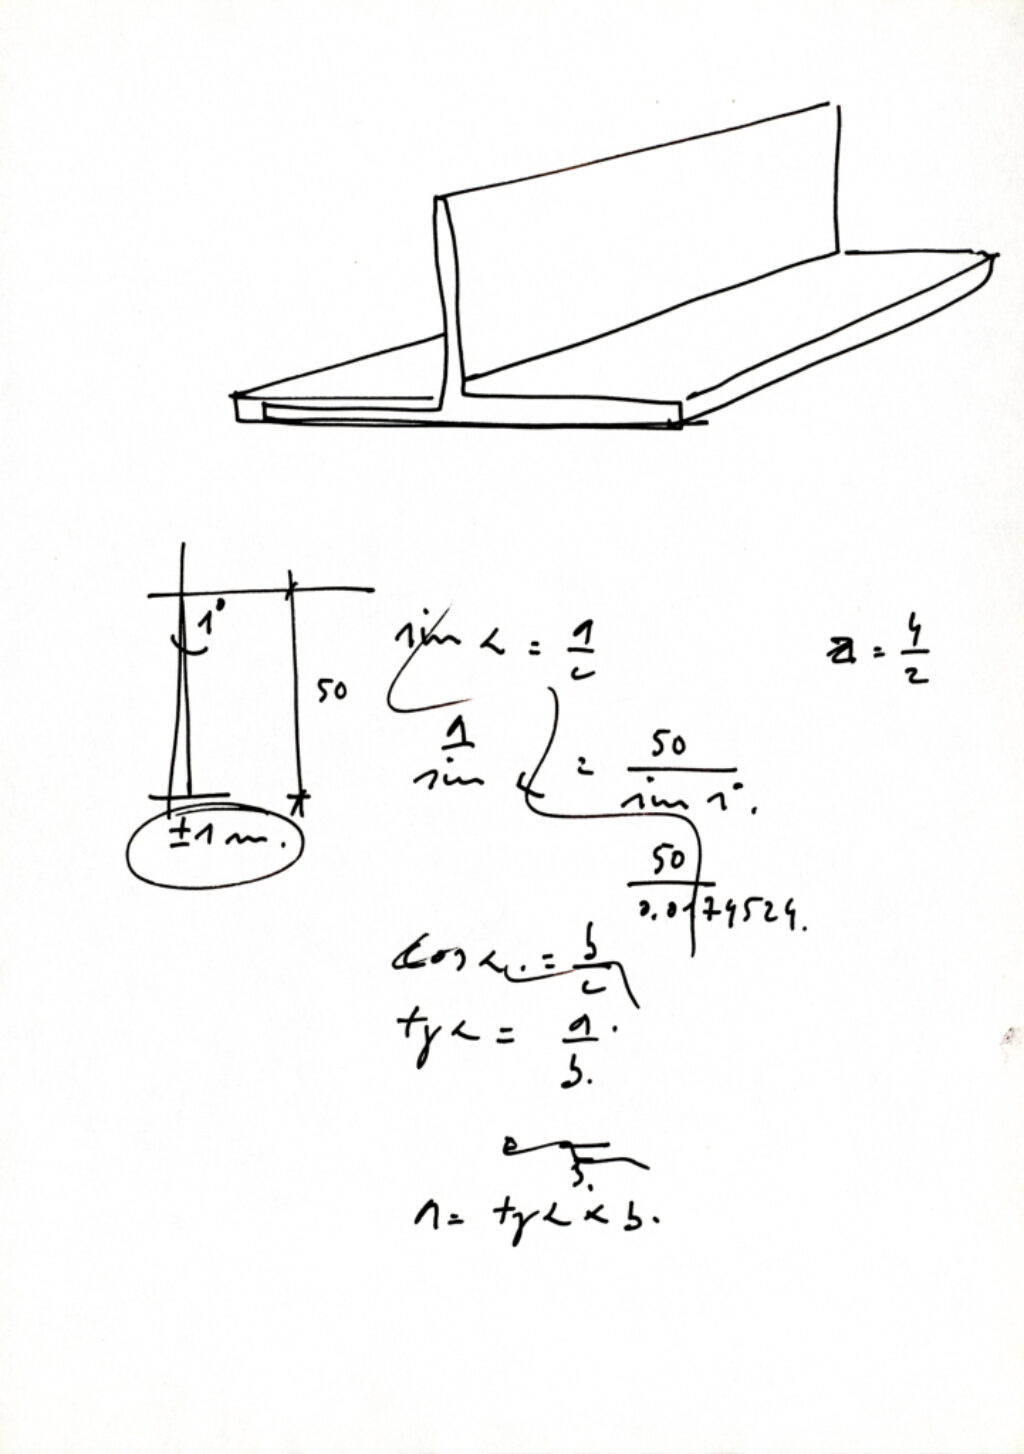 1°
50
±1 m.
sin α = a/c
a = 4/2
1/sin = 50/sin 1°.
50/0.0174524.
cos α. = b/c
tg α = a/b.
b.
a = tg α × b.